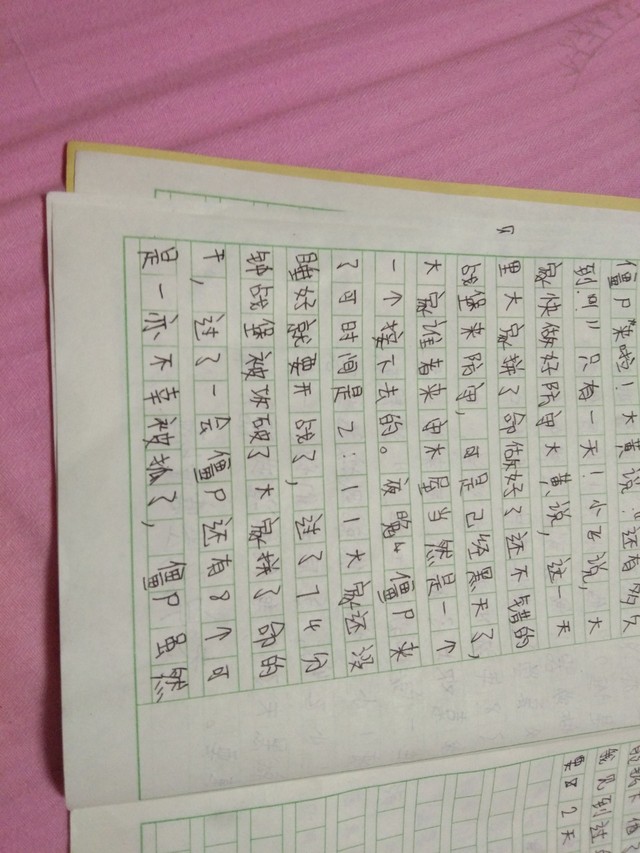 僵尸来啦！大黄说："还有多久
到叫" 只有一天！小飞说，大
家快做好防守大黄说，这一天
里大家拼了命做好了还不错的
战堡来防守，可是已经黑天了，
大家谁着来由木屋当然是一个
一个接下去的。夜晚 僵尸来
了可时间是2：11大家还没
睡好就要开战了，过了14分
钟战堡被攻破了大家拼了命的
干，过了一会僵尸还有8个可
是一亦不幸被抓了，僵尸虽然
到过
82天